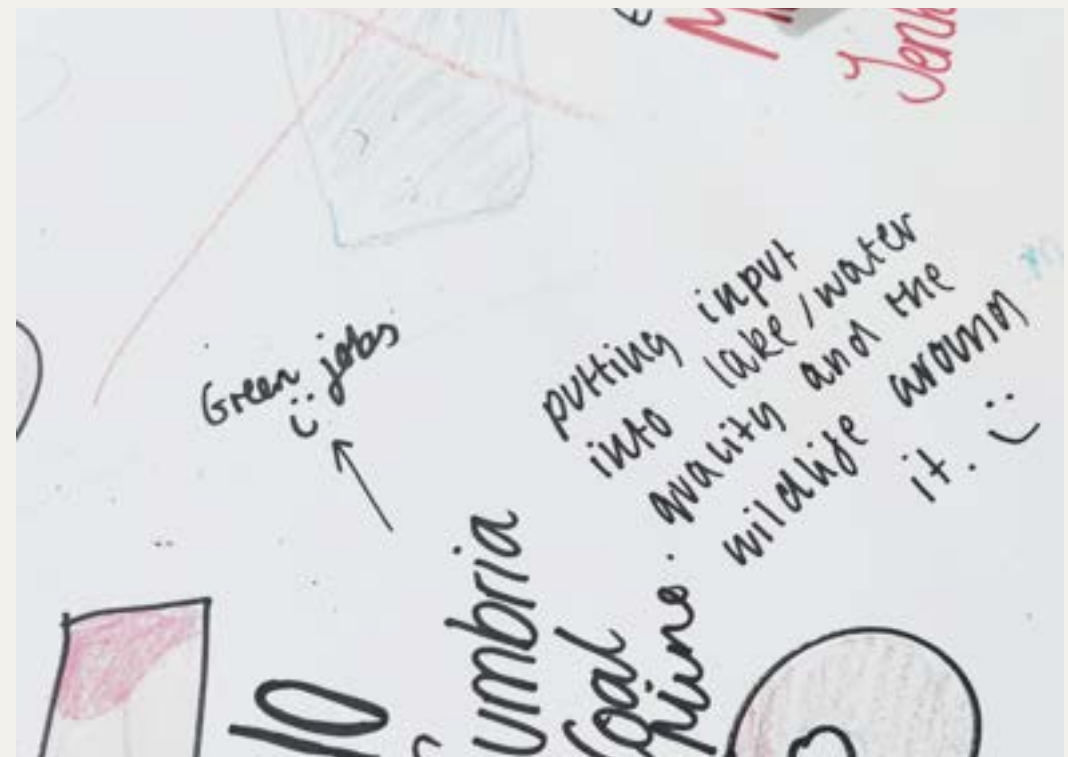 Green jobs
putting input
into lake/water
quality and the
wildlife around
it.
umbria
Coal